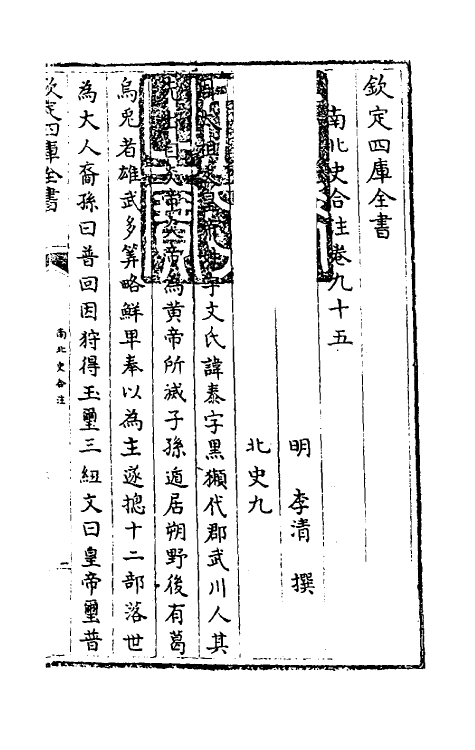 欽定四庫全書
南北史合注卷九十五
明 李清 撰
北史九
文氏諱泰字黑獺代郡武川人其
為黄帝所滅子孫遁居朔野後有葛
烏兎者雄武多筭略鮮卑奉以為主遂揔十二部落世
為大人裔孫曰普回因狩得玉璽三紐文曰皇帝璽普
欽定四庫全書
南北史合注